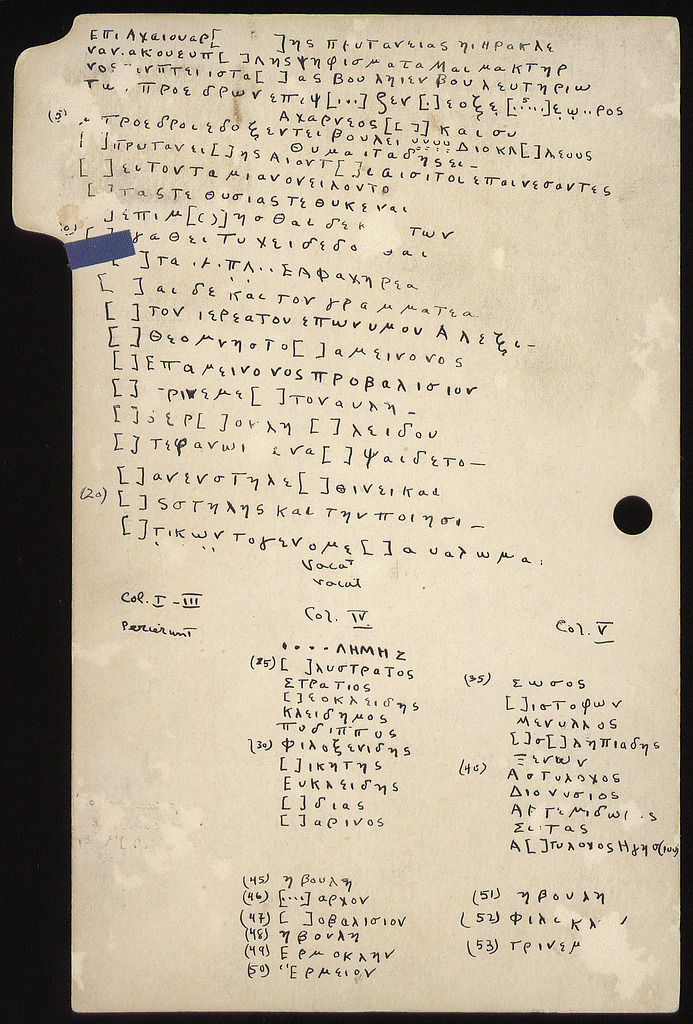 Επι Αχαιουαρ[ ]ης πρυτανειας ηι Ηρακλε
ναν.ακουευπ[ ]λης ψηφισματα Μαιμακτηρ
ιστα[ ]ας Βουληιεν βουλευτηριω
τω. προεδρων επιψ[...]ζεν[.]εοξε[..5..]εω..ρος
Αχαρνεος[[ ]] και συ
(5) προεδροι εδοξεν τει βουλει υυυυ Διοκλ[]λεους
[ ]πρυτανει[]ης Αιαντ[]
Θυμαιταδης ει-
[ ]ειτονταμιανονειλοντο
[ ]τας τε θυσιας τεθυκεναι
]επιμ[()]ησθαι δεκ των
[ ]γαθει Τυχει δεδο θαι
[ ]τα
[ ]αι δε και τον γραμματεα
[ ]τον ιερεα του επωνυμου Αλεξι-
[ ]Θεομνηστο[ ]αμεινονος
[ ]Επαμεινονος προβαλισιον
[ ] -ρινεμε[ ]τον αυλη-
[ ]οερ[ ]οκλη[ ]λειδου
[ ]τεφανωι ενα[ ]ψαι δε το-
[ ]ανενστηλε[ ]θινει και
(20) [ ]ςστηλης και την ποιησι-
[ ]τικων το γενομε[ ]α υαλωμα:
vacat
vacat
Col. I - III
Perierunt
Col. IV
....ΛΗΜΗΣ
(25) [ ]λυστρατος
Στρατιος
[ ]εοκλειδης
Κλειδημος
Πυδιππος
(30) Φιλοξενιδης
[ ]ικητης
Ευκλειδης
[ ]διας
[ ]αρινος
Col. V
(35) Σωσος
[ ]ιστοφων
Μενυλλος
[ ]σ[ ]ληπιαδης
Ξενων
(40) Αστυλοχος
Διονυσιος
Αρτεμιδωι.ς
Σιτας
Α[ ]τυλοχος Ηγησ(ιου)
(45) η βουλη
(46) [...]αρχον
(47) [ ]οβαλισιον
(48) η βουλη
(49) Ερμοκλην
(50) "Ερμειον
(51) η βουλη
(52) Φιλοκλ
(53) τρινεμ